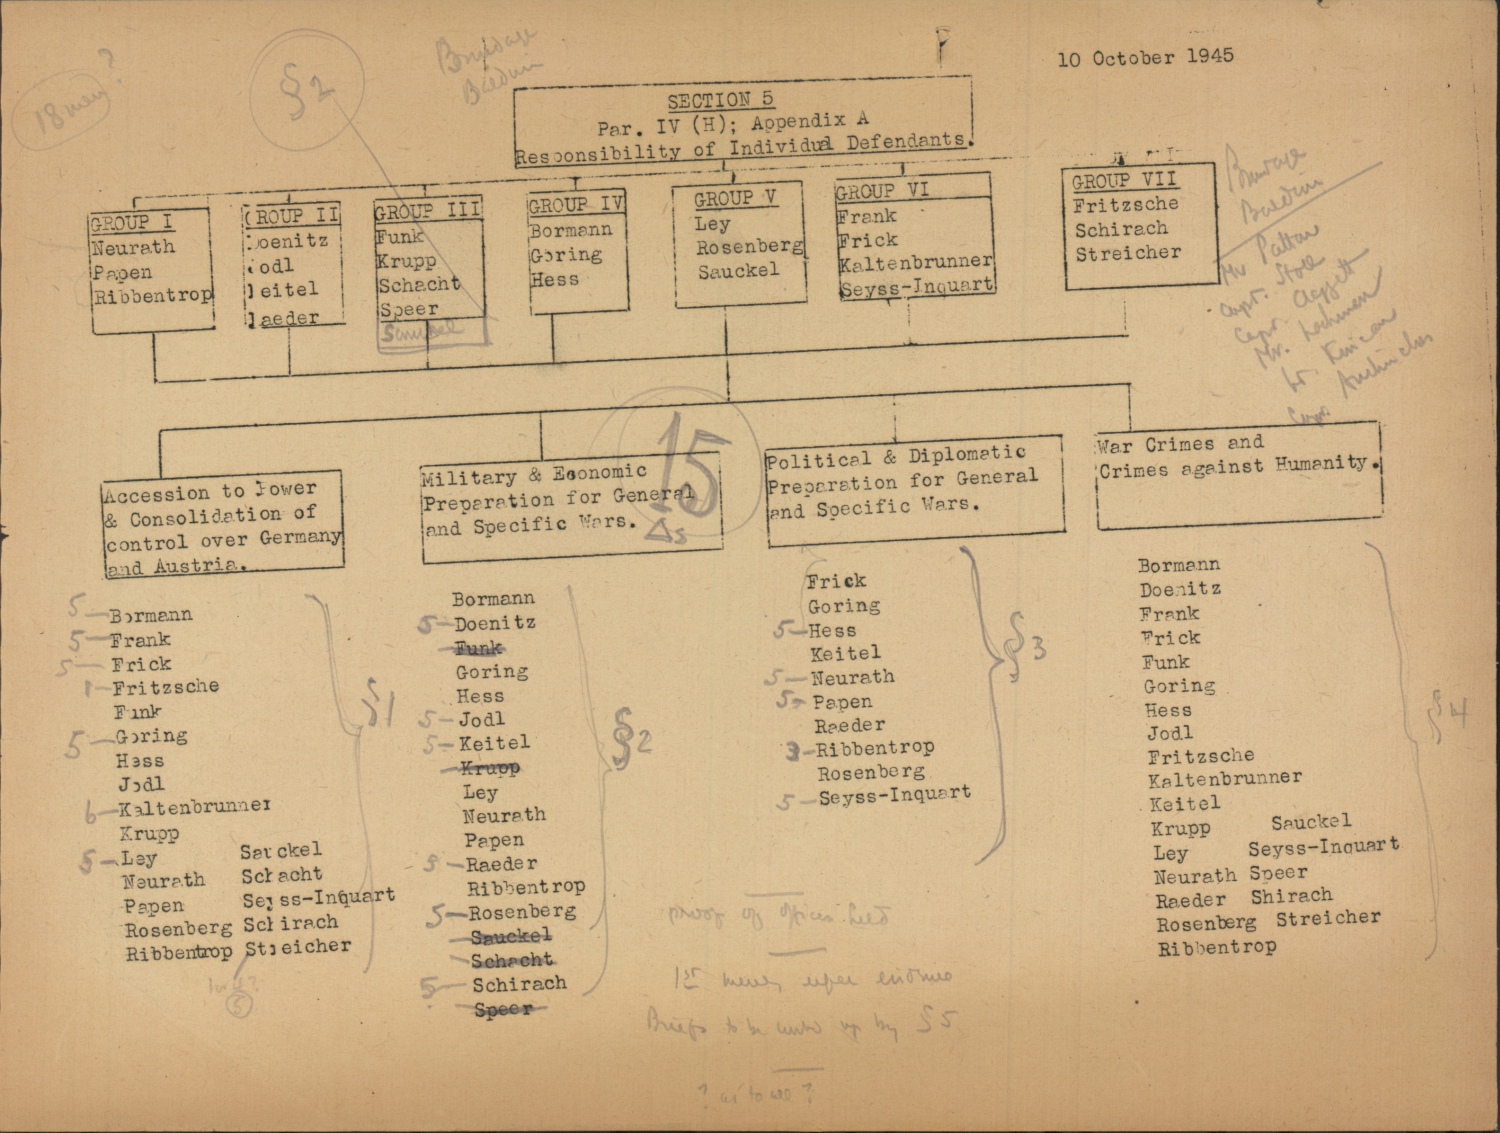 10 October 1945
18 men ?
§2
Brundage
Baldwin
SECTION 5
Par. IV (H); Appendix A
Responsibility of Individual Defendants.
GROUP I
Neurath
Papen
Ribbentrop
GROUP II
Doenitz
Jodl
Keitel
Raeder
GROUP III
Funk
Krupp
Schacht
Speer
Sauckel
GROUP IV
Bormann
Goring
Hess
GROUP V
Ley
Rosenberg
Sauckel
GROUP VI
Frank
Frick
Kaltenbrunner
Seyss-Inquart
GROUP VII
Fritzsche
Schirach
Streicher
Brundage
Baldwin
Mr Patton
Capt. Stoll
Capt. Clagett
Mr. Lachman
Lt.
Capt. Auchincloss
15
Δs
Accession to Power
& Consolidation of
control over Germany
and Austria.
Military & Economic
Preparation for General
and Specific Wars.
Political & Diplomatic
Preparation for General
and Specific Wars.
War Crimes and
Crimes against Humanity.
5—Bormann
5—Frank
5—Frick
1—Fritzsche
Funk
5—Goring
Hess
Jodl
6—Kaltenbrunner
Krupp
5—Ley Sauckel
Neurath Schacht
Papen Seyss-Inquart
Rosenberg Schirach
Ribbentrop Streicher
5
§1
Bormann
5—Doenitz
Funk
Goring
Hess
5—Jodl
5—Keitel
Krupp
Ley
Neurath
Papen
5—Raeder
Ribbentrop
5—Rosenberg
Sauckel
Schacht
5—Schirach
Speer
§2
Frick
Goring
5—Hess
Keitel
5—Neurath
5—Papen
Raeder
3—Ribbentrop
Rosenberg
5—Seyss-Inquart
§3
Bormann
Doenitz
Frank
Frick
Funk
Goring
Hess
Jodl
Fritzsche
Kaltenbrunner
Keitel
Krupp Sauckel
Ley Seyss-Inquart
Neurath Speer
Raeder Shirach
Rosenberg Streicher
Ribbentrop
§4
proof of offices held
1st
Briefs to be up by §5
? as to all ?